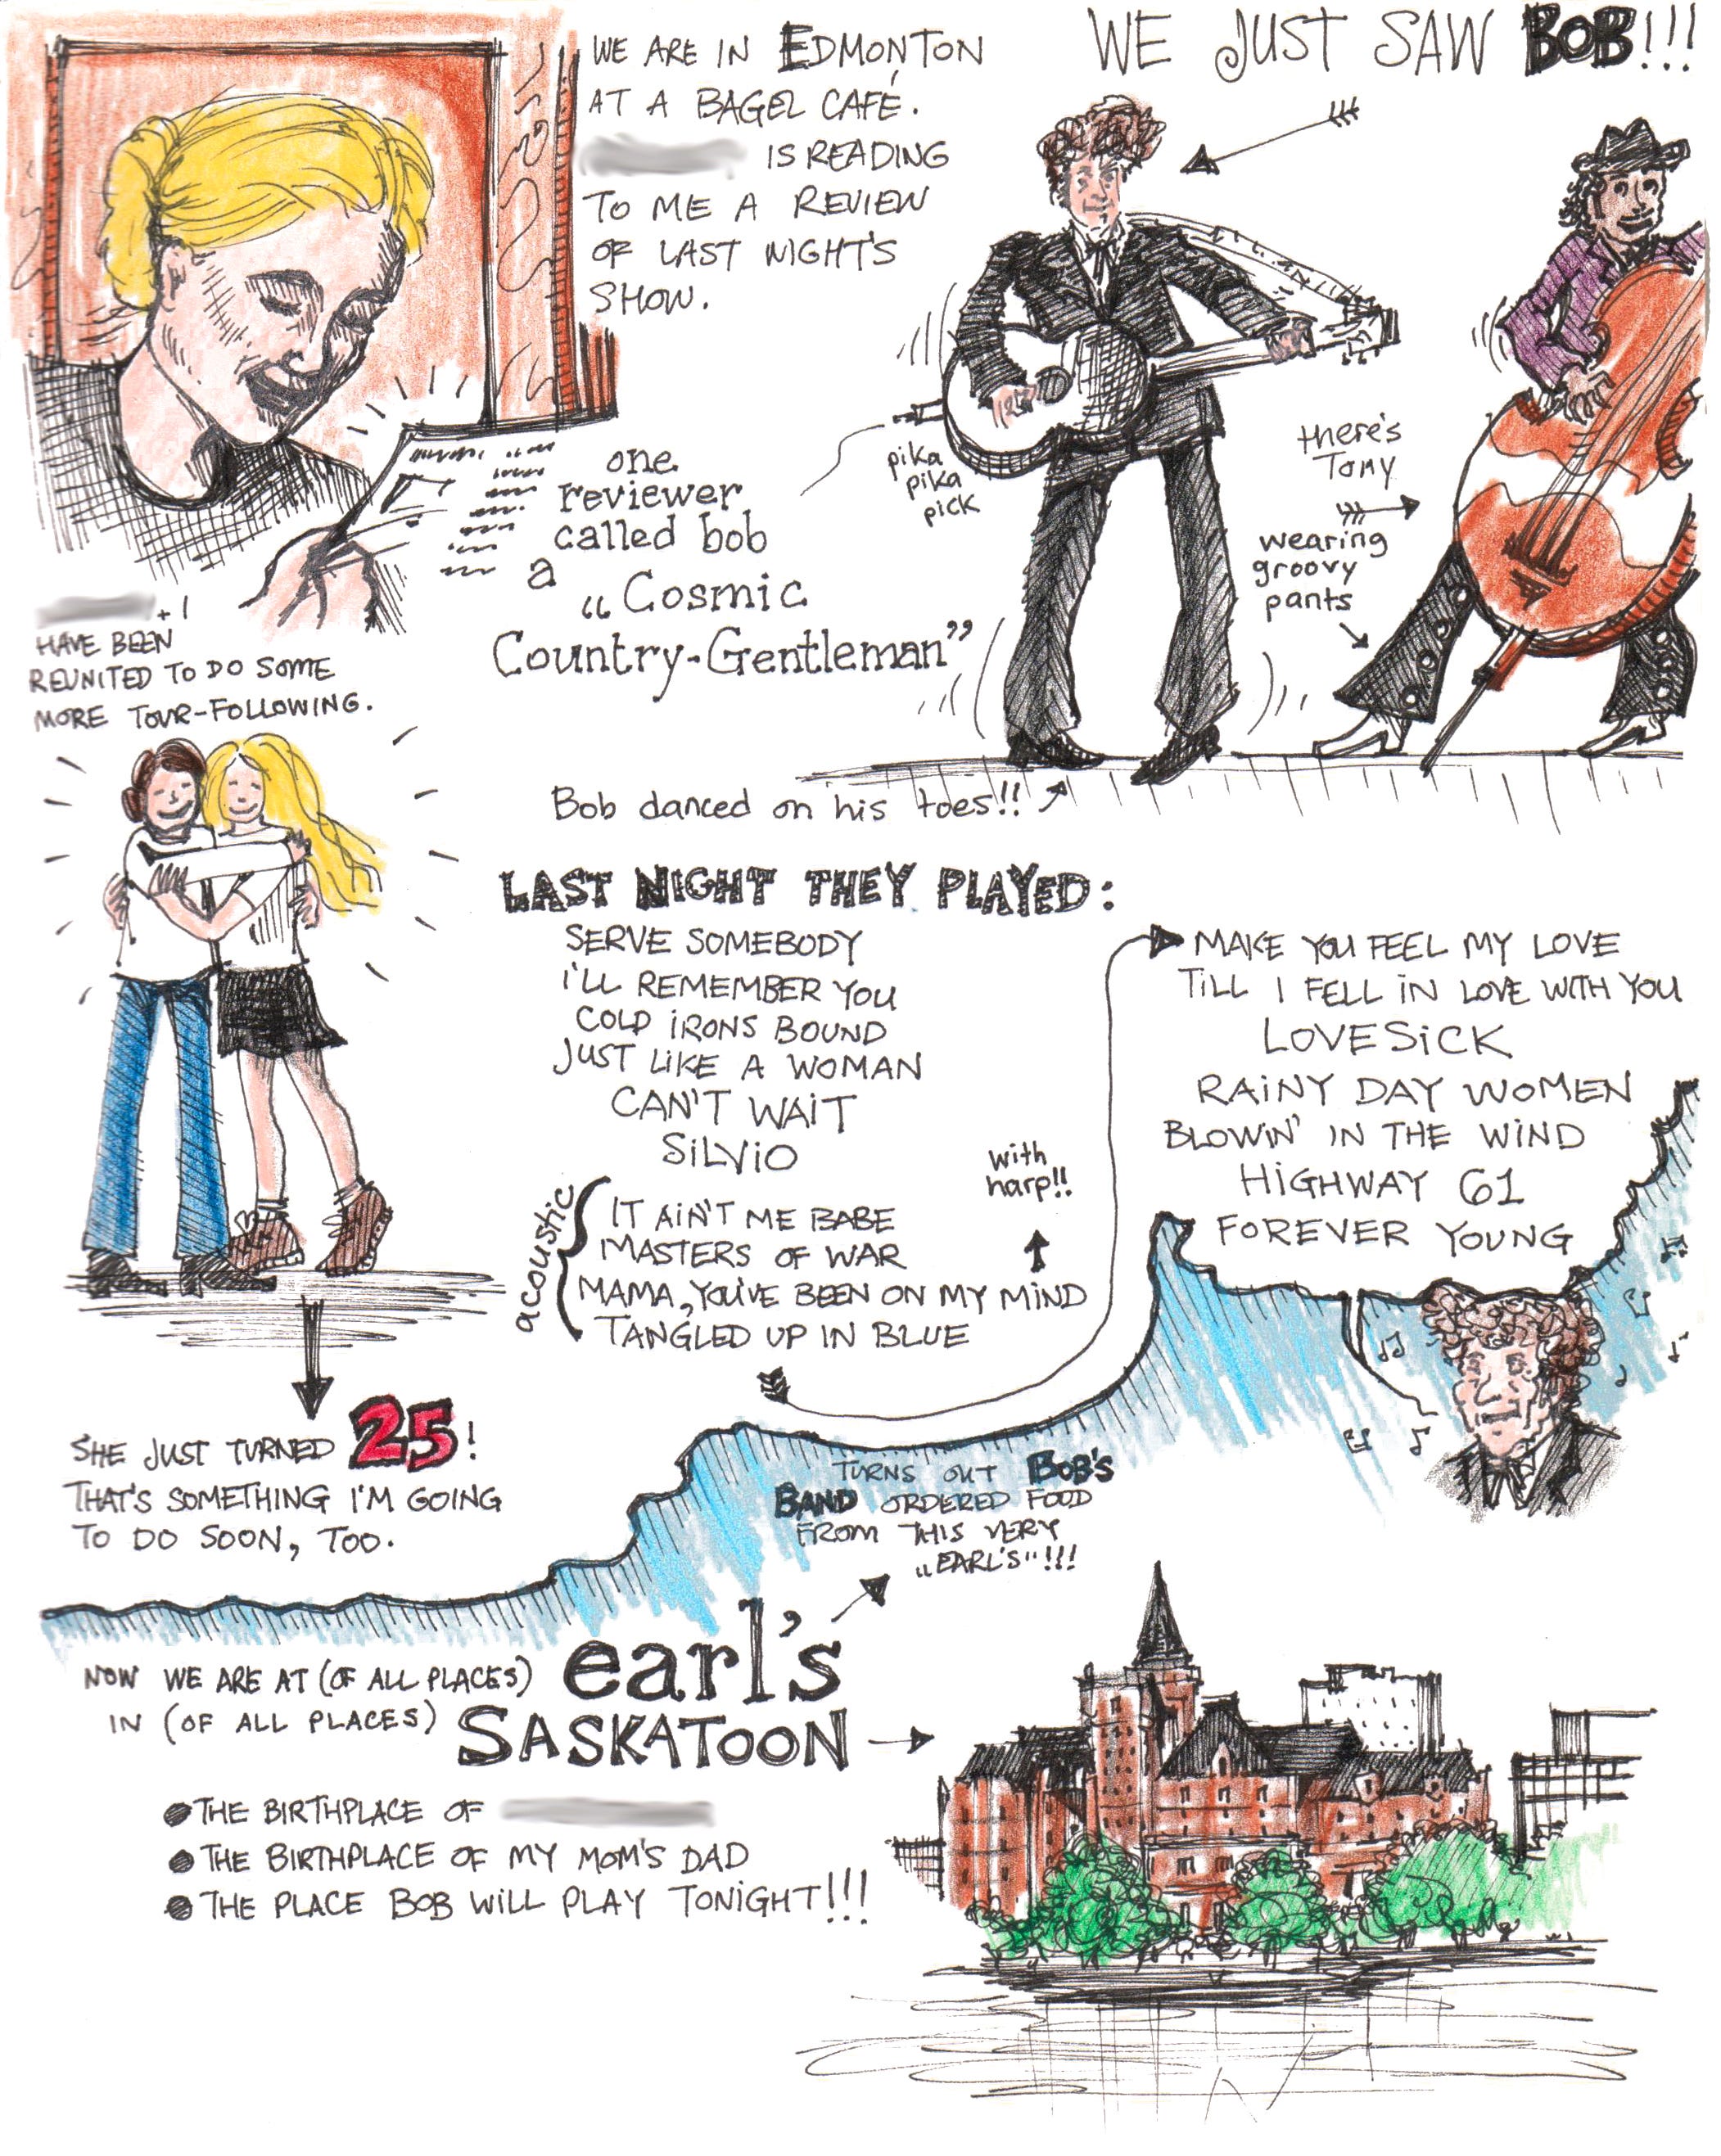 WE ARE IN EDMONTON
AT A BAGEL CAFÉ.
IS READING
TO ME A REVIEW
OF LAST NIGHT'S
SHOW.
WE JUST SAW BOB!!!
one
reviewer
called bob
a
„Cosmic
Country-Gentleman”
pika
pika
pick
there's
Tony
wearing
groovy
pants
+ I
HAVE BEEN
REUNITED TO DO SOME
MORE TOUR-FOLLOWING.
Bob danced on his toes!!
LAST NIGHT THEY PLAYED:
SERVE SOMEBODY
I'LL REMEMBER YOU
COLD IRONS BOUND
JUST LIKE A WOMAN
CAN'T WAIT
SILVIO
acoustic
IT AIN'T ME BABE
MASTERS OF WAR
MAMA, YOU'VE BEEN ON MY MIND
TANGLED UP IN BLUE
with
harp!!
MAKE YOU FEEL MY LOVE
TILL I FELL IN LOVE WITH YOU
LOVESICK
RAINY DAY WOMEN
BLOWIN' IN THE WIND
HIGHWAY 61
FOREVER YOUNG
SHE JUST TURNED 25!
THAT'S SOMETHING I'M GOING
TO DO SOON, TOO.
TURNS OUT BOB'S
BAND ORDERED FOOD
FROM THIS VERY
„EARL'S"!!!
NOW WE ARE AT (OF ALL PLACES) earl's
IN (OF ALL PLACES) SASKATOON
● THE BIRTHPLACE OF
● THE BIRTHPLACE OF MY MOM'S DAD
● THE PLACE BOB WILL PLAY TONIGHT!!!